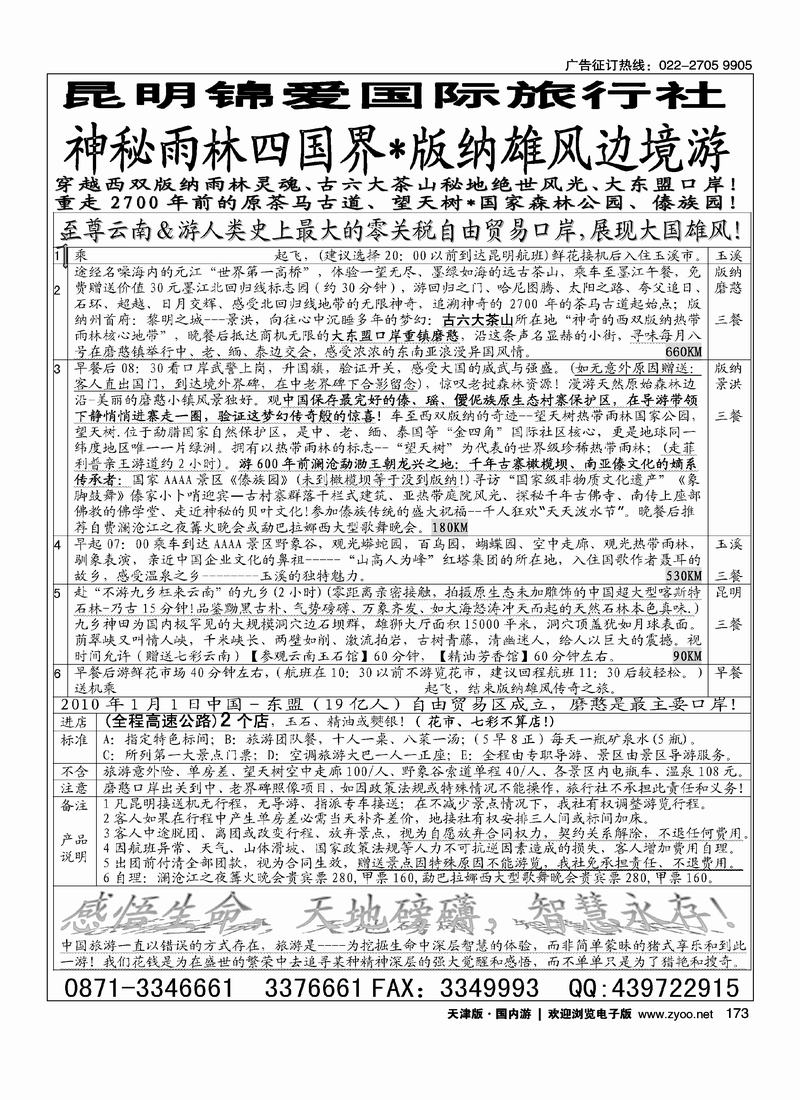 广告征订热线：022-2705 9905
昆明锦爱国际旅行社
神秘雨林四国界*版纳雄风边境游
穿越西双版纳雨林灵魂、古六大茶山秘地绝世风光、大东盟口岸！
重走2700年前的原茶马古道、望天树*国家森林公园、傣族园！
至尊云南&游人类史上最大的零关税自由贸易口岸,展现大国雄风！
1 乘 起飞，(建议选择20：00以前到达昆明航班)鲜花接机后入住玉溪市。 玉溪
途经名噪海内的元江“世界第一高桥”，体验一望无尽、墨绿如海的远古茶山，乘车至墨江午餐，免 版纳
2 费赠送价值30元墨江北回归线标志园（约30分钟），游回归之门、哈尼图腾、太阳之路、夸父追日、 磨憨
石环、超越、日月交辉、感受北回归线地带的无限神奇，追溯神奇的2700年的茶马古道起始点；版
纳州首府：黎明之城---景洪，向往心中沉睡多年的梦幻：古六大茶山所在地“神奇的西双版纳热带 三餐
雨林核心地带”，晚餐后抵达商机无限的大东盟口岸重镇磨憨，沿这条声名显赫的小街，寻味每月八
号在磨憨镇举行中、老、缅、泰边交会，感受浓浓的东南亚浪漫异国风情。 660KM
3 早餐后08：30看口岸武警上岗，升国旗，验证开关，感受大国的威武与强盛。(如无意外原因赠送： 版纳
客人直出国门，到达境外界碑，在中老界碑下合影留念)，惊叹老挝森林资源！漫游天然原始森林边 景洪
沿-美丽的磨憨小镇风景独好。观中国保存最完好的傣、瑶、僾伲族原生态村寨保护区，在导游带领
下静悄悄进寨走一圈，验证这梦幻传奇般的惊喜！车至西双版纳的奇迹--望天树热带雨林国家公园， 三餐
望天树.位于勐腊国家自然保护区，是中、老、缅、泰国等“金四角”国际社区核心，更是地球同一
纬度地区唯一一片绿洲。拥有以热带雨林的标志--“望天树”为代表的世界级珍稀热带雨林；(走菲
利普亲王游道约2小时)。游600年前澜沧勐泐王朝龙兴之地：千年古寨橄榄坝、南亚傣文化的嫡系
传承者：国家AAAA景区《傣族园》(未到橄榄坝等于没到版纳！)寻访“国家级非物质文化遗产”《象
脚鼓舞》傣家小卜哨迎宾—古村寨群落干栏式建筑、亚热带庭院风光、探秘千年古佛寺、南传上座部
佛教的佛学堂、走近神秘的贝叶文化!参加傣族传统的盛大祝福--千人狂欢“天天泼水节”。晚餐后推
荐自费澜沧江之夜篝火晚会或勐巴拉娜西大型歌舞晚会。180KM
4 早起07：00乘车到达AAAA景区野象谷，观光蟒蛇园，百鸟园，蝴蝶园、空中走廊、观光热带雨林， 玉溪
驯象表演，亲近中国企业文化的鼻祖-----“山高人为峰”红塔集团的所在地，入住国歌作者聂耳的
故乡，感受温泉之乡--------玉溪的独特魅力。 530KM 三餐
5 赴“不游九乡枉来云南”的九乡(2小时)(零距离亲密接触，拍摄原生态未加雕饰的中国超大型喀斯特 昆明
石林-乃古15分钟!品鉴黝黑古朴、气势磅礴、万象齐发、如大海怒涛冲天而起的天然石林本色真味.)
九乡神田为国内极罕见的大规模洞穴边石坝群，雄狮大厅面积15000平米，洞穴顶盖犹如月球表面。 三餐
荫翠峡又叫情人峡，千米峡长、两壁如削、激流拍岩，古树青藤，清幽迷人，给人以巨大的震撼。视
时间允许（赠送七彩云南）【参观云南玉石馆】60分钟，【精油芳香馆】60分钟左右。 90KM
6 早餐后游鲜花市场40分钟左右，（航班在10：30以前不游览花市，建议回程航班11：30后较轻松。） 早餐
送机乘 起飞，结束版纳雄风传奇之旅。
2010年1月1日中国-东盟（19亿人）自由贸易区成立，磨憨是最主要口岸！
进店 (全程高速公路)2个店，玉石、精油或僰银！（花市、七彩不算店！）
标准 A：指定特色标间；B：旅游团队餐，十人一桌、八菜一汤；(5早8正）每天一瓶矿泉水(5瓶)。
C：所列第一大景点门票；D：空调旅游大巴一人一正座；E：全程由专职导游、景区由景区导游服务。
不含 旅游意外险、单房差、望天树空中走廊100/人、野象谷索道单程40/人、各景区内电瓶车、温泉108元。
注意 磨憨口岸出关到中、老界碑照像项目，如因政策法规或特殊情况不能操作，旅行社不承担此责任和义务！
备注 1凡昆明接送机无行程，无导游、指派专车接送；在不减少景点情况下，我社有权调整游览行程。
2客人如果在行程中产生单房差必需当天补齐差价，地接社有权安排三人间或标间加床。
产品 3客人中途脱团、离团或改变行程、放弃景点，视为自愿放弃合同权力，契约关系解除，不退任何费用。
说明 4因航班异常、天气、山体滑坡、国家政策法规等人力不可抗逆因素造成的损失，客人增加费用自理。
5出团前付清全部团款，视为合同生效，赠送景点因特殊原因不能游览，我社免承担责任、不退费用。
6自理：澜沧江之夜篝火晚会贵宾票280,甲票160,勐巴拉娜西大型歌舞晚会贵宾票280,甲票160。
感悟生命，天地磅礴，智慧永存！
中国旅游一直以错误的方式存在，旅游是----为挖掘生命中深层智慧的体验，而非简单蒙昧的猪式享乐和到此
一游！我们花钱是为在盛世的繁荣中去追寻某种精神深层的强大觉醒和感悟，而不单单只是为了猎艳和搜奇。
0871-3346661 3376661 FAX：3349993 QQ:439722915
天津版·国内游 | 欢迎浏览电子版 www.zyoo.net 173